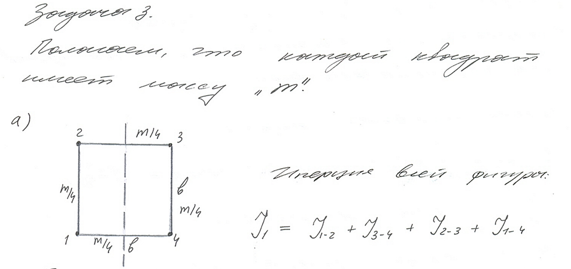 Задача 3.
Полагаем, что каждый квадрат
имеет массу „m".
а)
2 m/4 3
m/4 в m/4
Инерция всей фигуры:
J₁ = J₁₋₂ + J₃₋₄ + J₂₋₃ + J₁₋₄
1 m/4 в 4